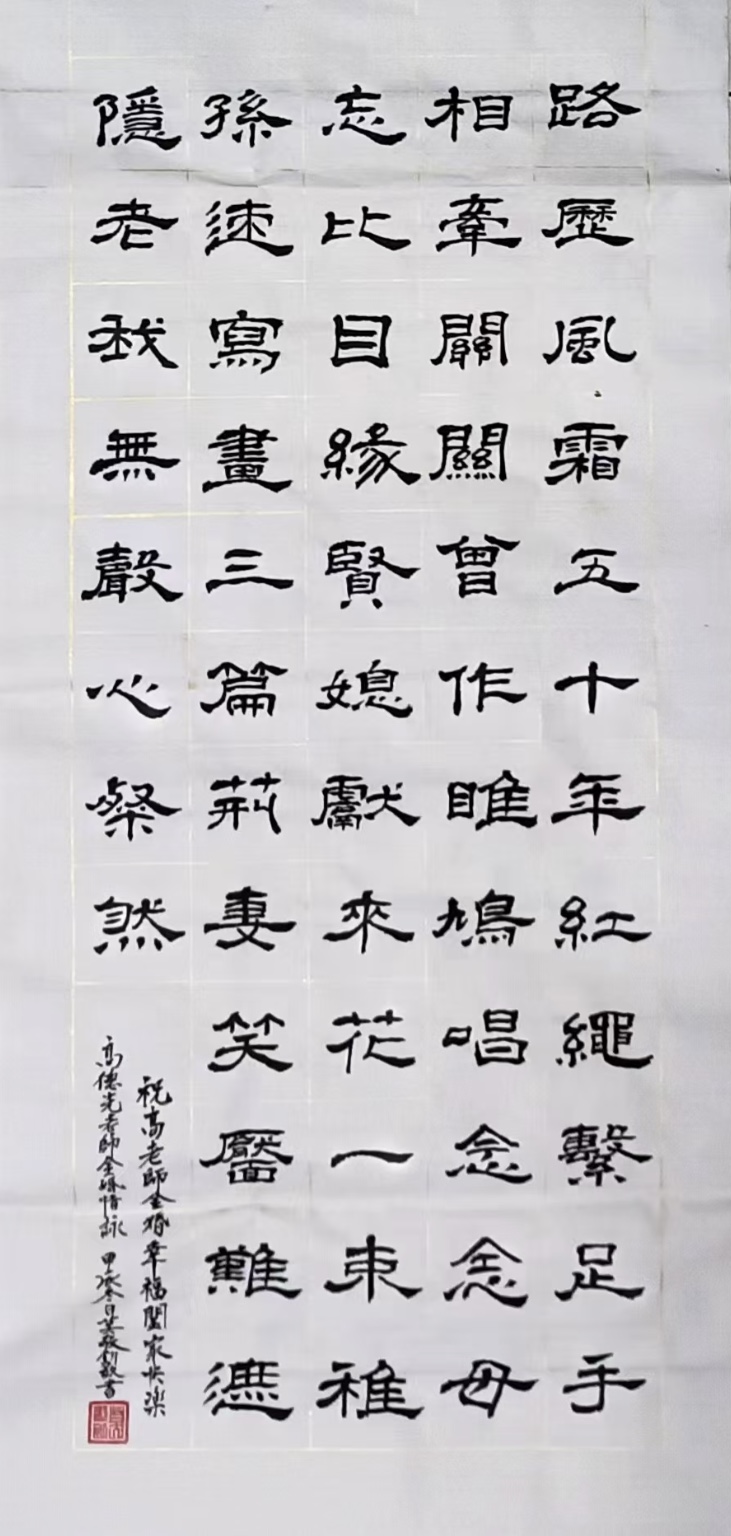 路歷風霜五十年紅繩繫足手
相牽關關曾作睢鳩唱念念毋
忘比目緣賢媳獻來花一束稚
孫速寫畫三篇荊妻笑靨難遮
隱老我無聲心粲然
祝高老師金婚幸福闔家快樂
高德光老師金婚情詠 甲辰冬日敬書